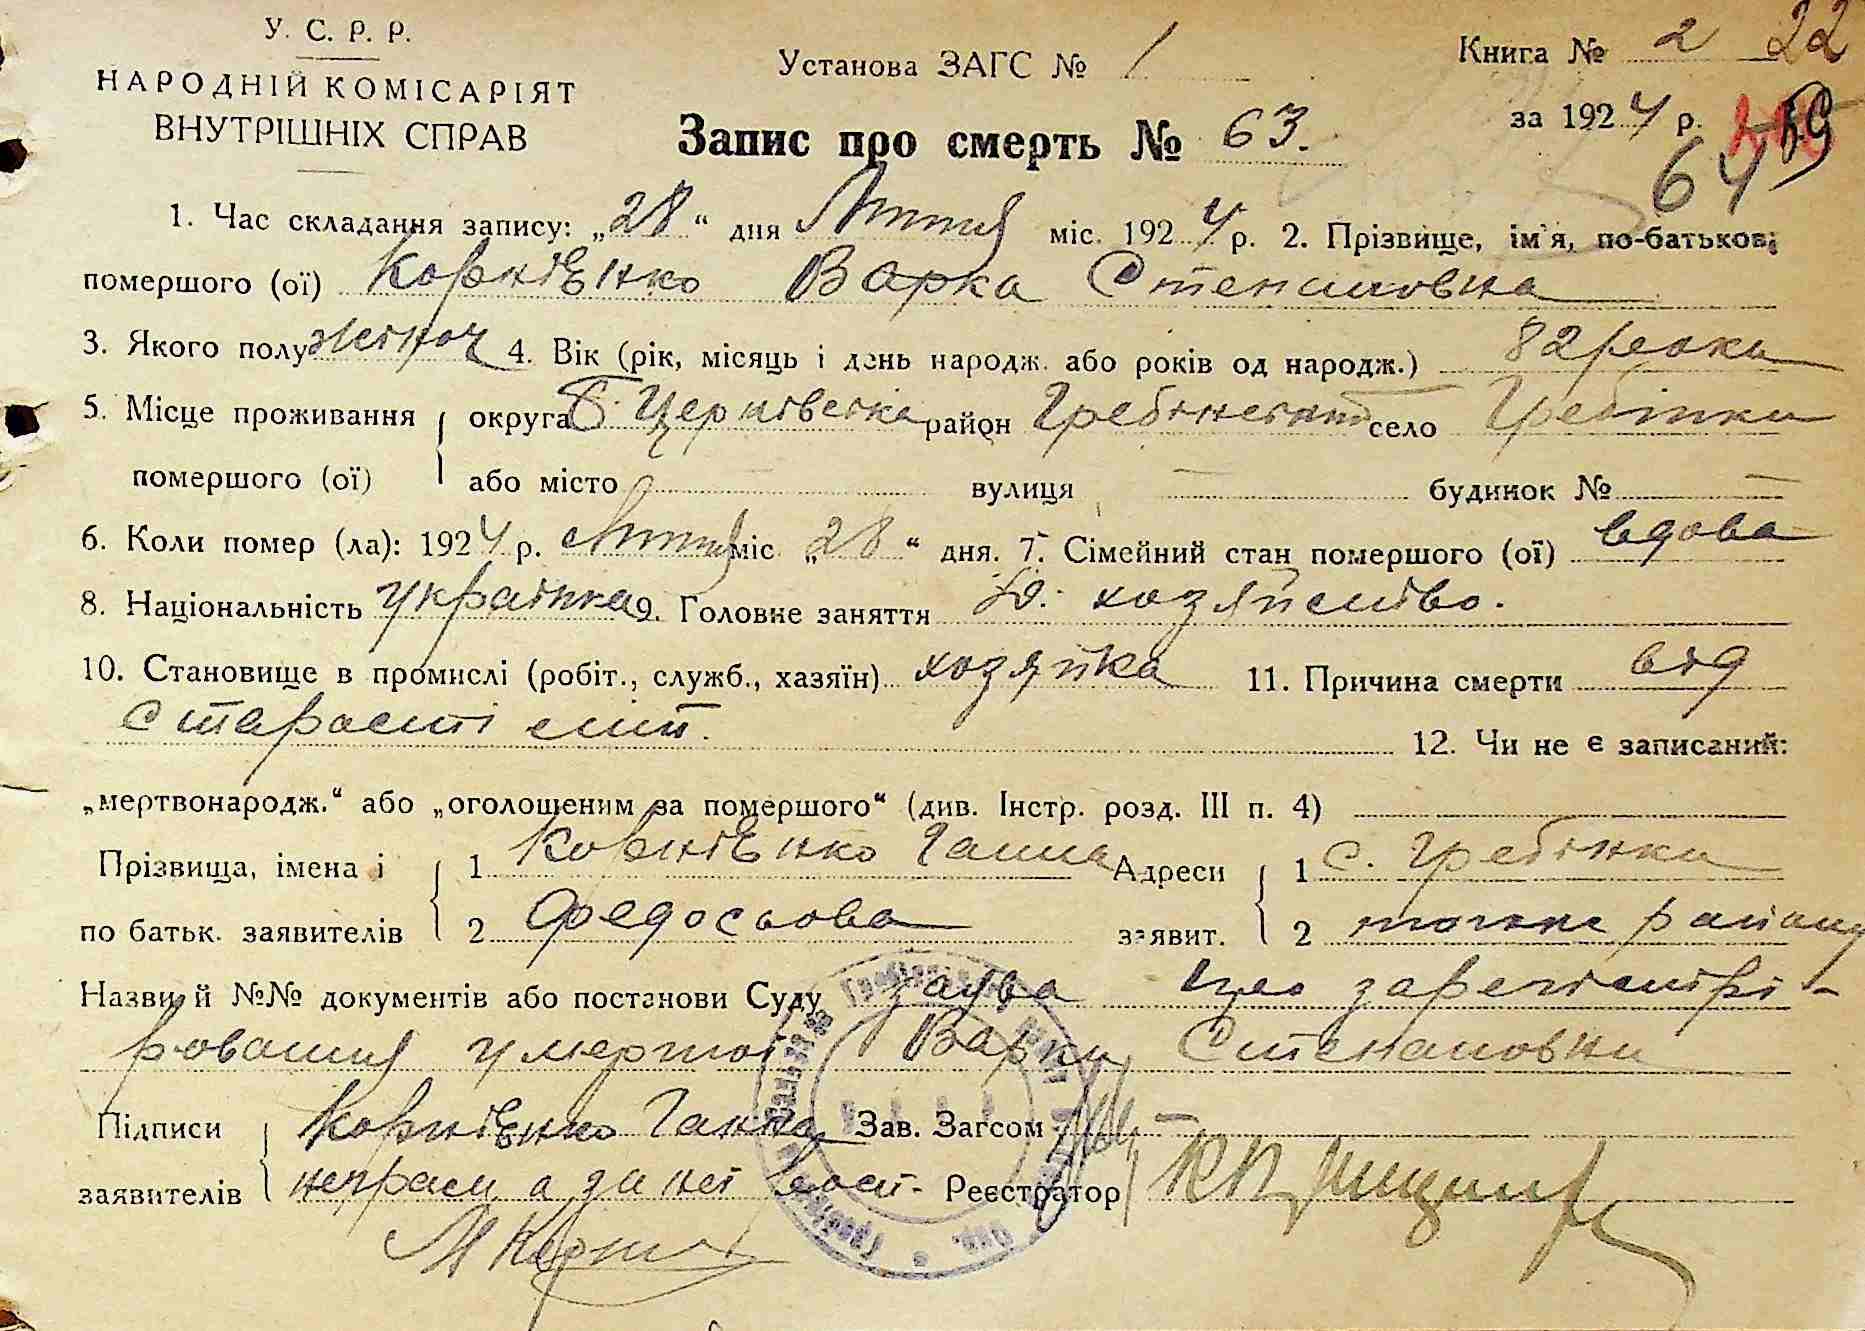 У. С. Р. Р.
НАРОДНІЙ КОМІСАРІЯТ
ВНУТРІШНІХ СПРАВ
Установа ЗАГС № 1
Книга № 2 22
за 1924 р.
64
Запис про смерть № 63.
1. Час складання запису: „28“ дня Лютня міс. 1924 р. 2. Прізвище, ім'я, по-батькові
помершого (ої) Корнієнко Варка Степановна
3. Якого полу жіноч 4. Вік (рік, місяць і день народж. або років од народж.) 82 роки
5. Місце проживання помершого (ої) округа Б. Церківська район Гребінський село Гребінки
або місто — вулиця — будинок № —
6. Коли помер (ла): 1924 р. Лютня міс. „28“ дня. 7. Сімейний стан помершого (ої) вдова
8. Національність українка 9. Головне заняття хозяйство.
10. Становище в промислі (робіт., служб., хазяїн) хозяйка 11. Причина смерти від
старості літ. 12. Чи не є записаний:
„мертвонародж.“ або „оголошеним за помершого“ (див. Інстр. розд. III п. 4)
Прізвища, імена і по батьк. заявителів 1 Корнієнко Ганна Адреси заявит. 1 с. Гребінки
2 Федосьова 2 району
Назви й №№ документів або постанови Суду заява про зарегістрі-
рования умершої Варки Степановни
Підписи заявителів Корнієнко Ганна Зав. Загсом
неграм. а за неї Реєстратор